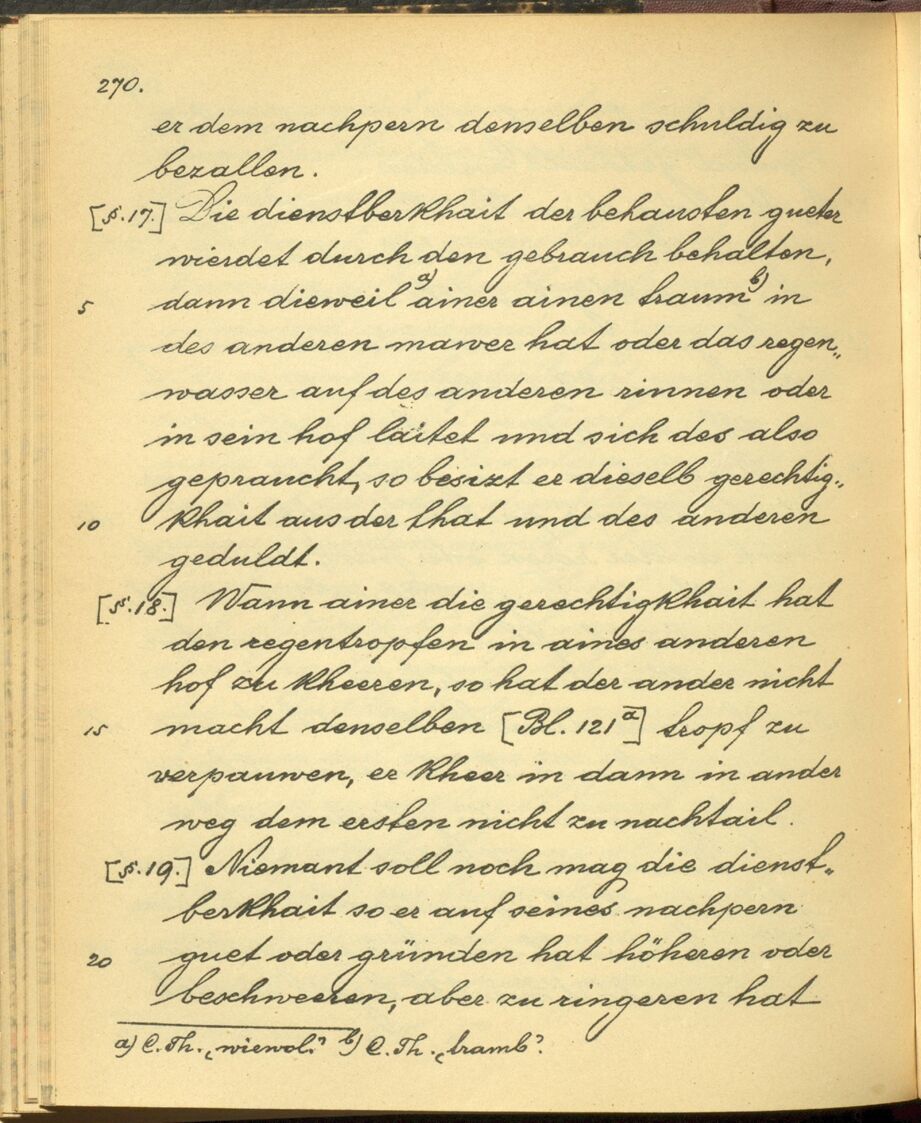 270.
er dem nachpern demselben schuldig zu
bezallen.
[§.17.] Die dienstberkhait der behausten gueter
wierdet durch den gebrauch behalten,
5 dann dieweil a) ainer ainen traum b) in
des anderen mawer hat oder das regen„
wasser auf des anderen rinnen oder
in sein hof laitet und sich des also
gepraucht, so besizt er dieselb gerechtig„
10 khait aus der that und des anderen
geduldt.
[§.18.] Wann ainer die gerechtigkhait hat
den regentropfen in aines anderen
hof zu kheeren, so hat der ander nicht
15 macht denselben [Bl. 121a] tropf zu
verpauwen, er kheer in dann in ander
weg dem ersten nicht zu nachtail.
[§.19.] Niemant soll noch mag die dienst„
berkhait so er auf seines nachpern
20 guet oder gründen hat höheren oder
beschweeren, aber zu ringeren hat
a) C. Th. „wiewol.” b) C. Th. „tramb”.